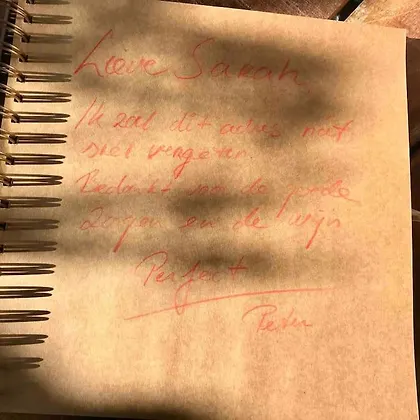 Lieve Sarah,
Ik zal dit adres niet
snel vergeten.
Bedankt voor de goede
Zorgen en de wijn
Perfect
Peter